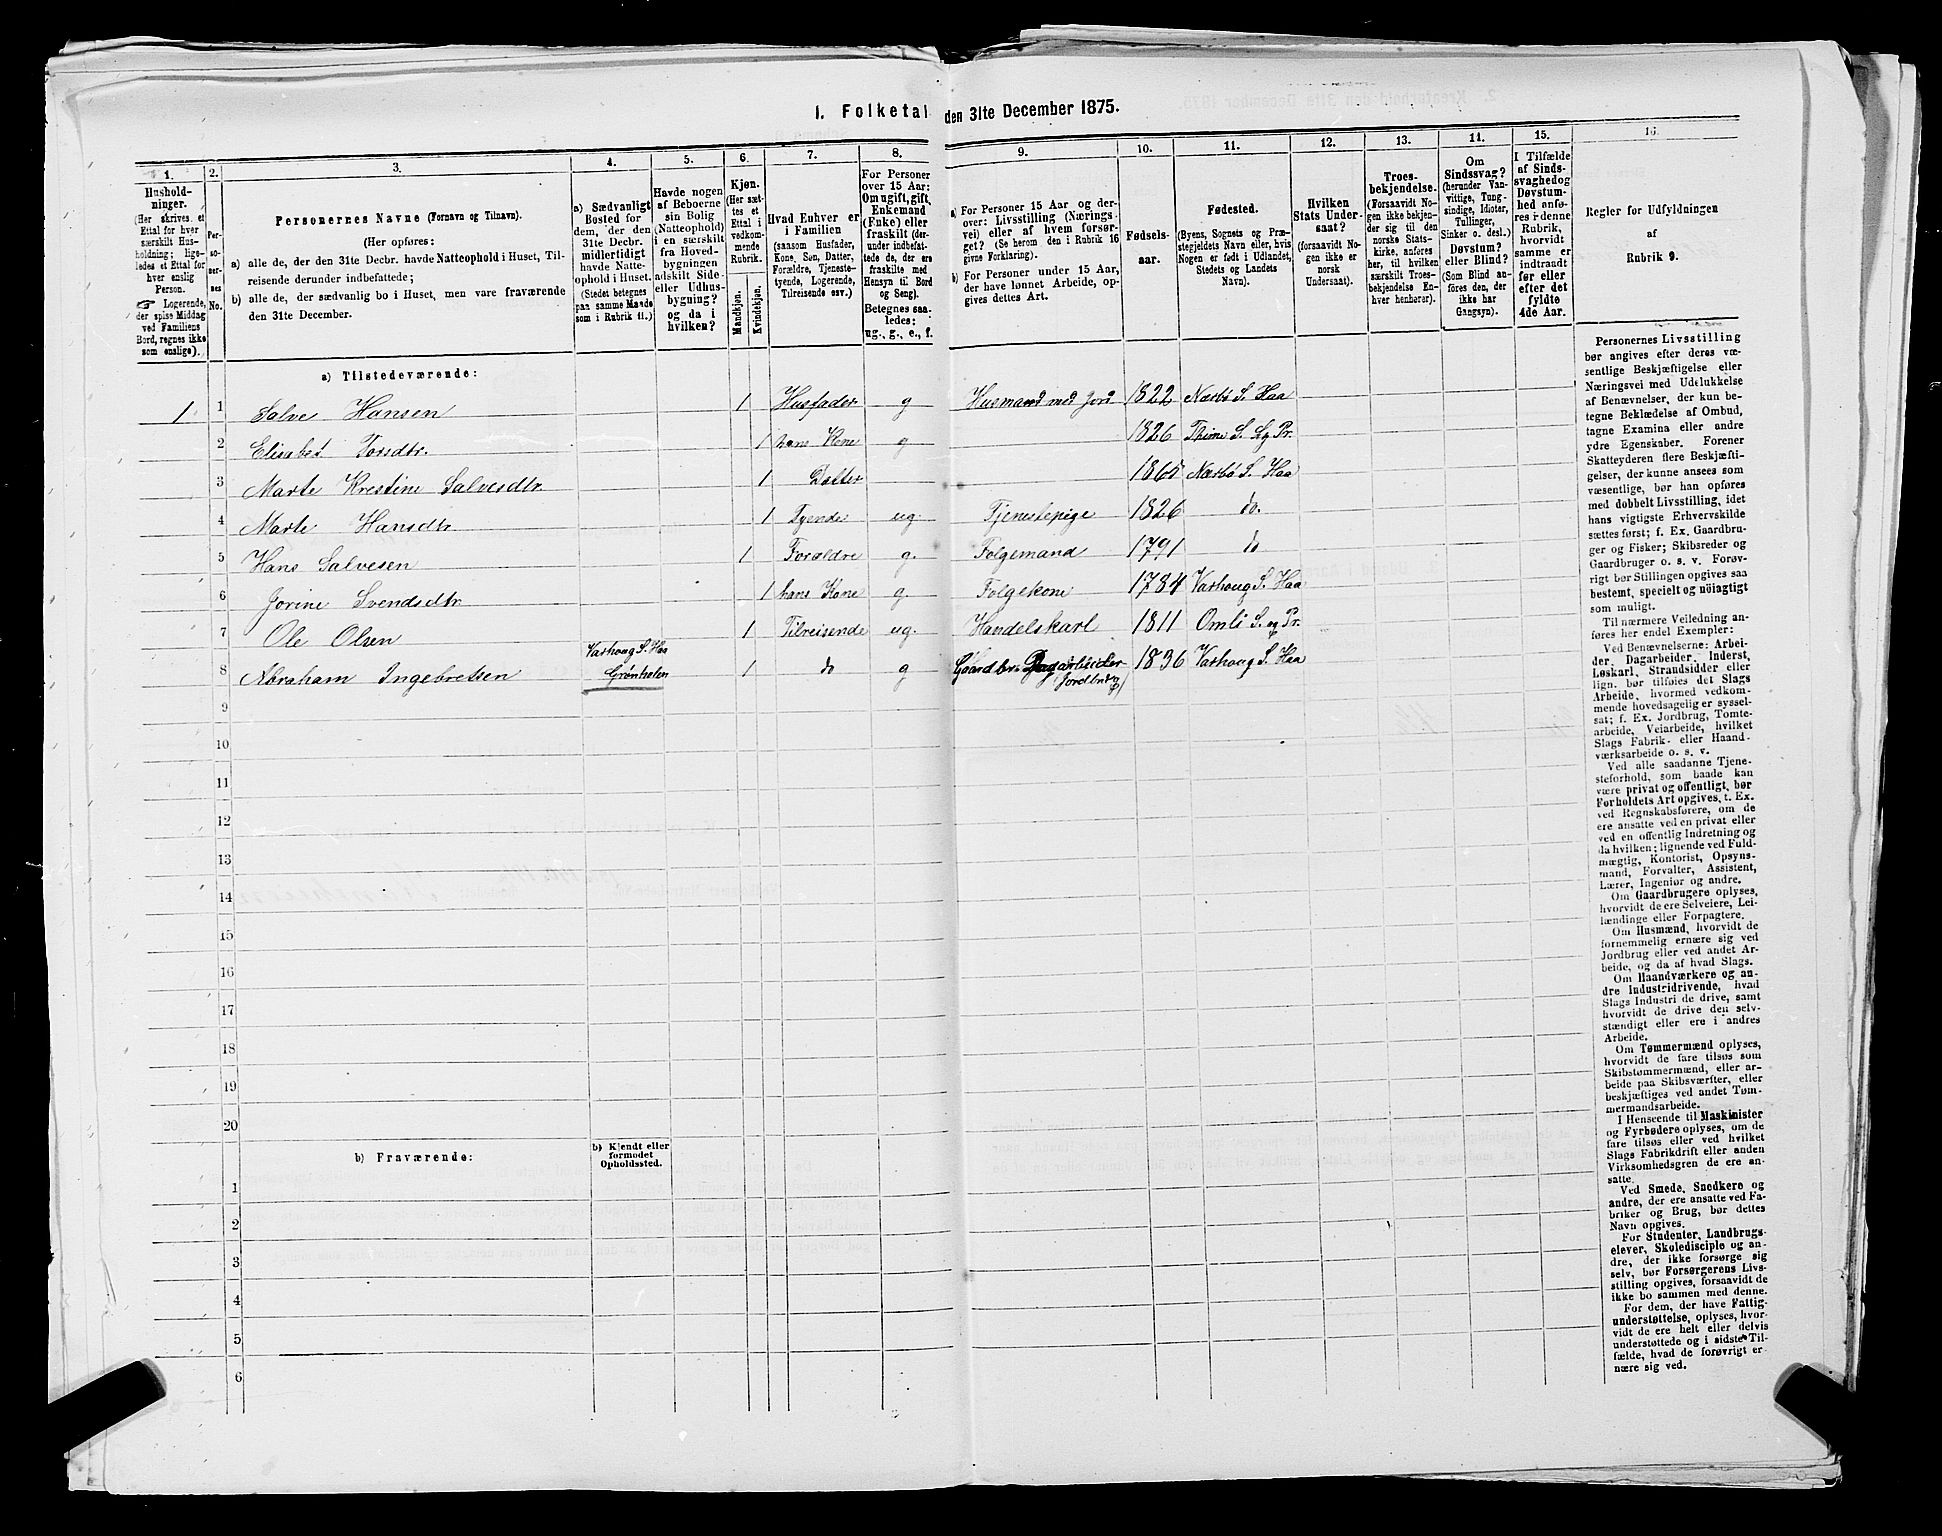 I. Folketal den 31te December 1875.
1. 2. 3. 4. 5. 6. 7. 8. 9. 10. 11. 12. 13. 14. 15. 16.
Husholdninger.
(Her skrives et
Ettal for hver
særskilt Husholdning; ligeledes et Ettal for
hver enslig
Person.
☞ Logerende,
der spise Middag
ved Familiens
Bord, regnes ikke
som enslige).
Personernes
No.
Personernes Navne (Fornavn og Tilnavn).
(Her opføres:
a) alle de, der den 31te Decbr. havde Natteophold i Huset, Tilreisende derunder indbefattede;
b) alle de, der sædvanlig bo i Huset, men vare fraværende
den 31te December.
a) Sædvanligt
Bosted for
dem, der den
31te Decbr.
midlertidigt
havde Natteophold i Huset.
(Stedet betegnes
paa samme Maade
som i Rubrik 11.)
Havde nogen
af Beboerne
sin Bolig
(Natteophold)
i en særskilt
fra Hovedbygningen
adskilt Side-
eller Udhusbygning?
og da i
hvilken?
Kjøn.
(Her sættes et
Ettal i
vedkommende
Rubrik.
Mandkjøn.
Kvindekjøn.
Hvad Enhver er
i Familien
(saasom Husfader,
Kone, Søn, Datter,
Forældre, Tjenestetyende, Logerende,
Tilreisende osv.)
For Personer
over 15 Aar:
Om ugift, gift,
Enkemand
(Enke) eller
fraskilt (derunder indbefattede de, der ere
fraskilte med
Hensyn til Bord
og Seng).
Betegnes saaledes:
ug., g., e., f.
a) For Personer 15 Aar og derover: Livsstilling (Næringsvei) eller af hvem forsørget? (Se herom den i Rubrik 16
givne Forklaring).
b) For Personer under 15 Aar,
der have lønnet Arbeide, opgives dettes Art.
Fødselsaar.
Fødested.
(Byens, Sognets og Præstegjeldets Navn eller, hvis
Nogen er født i Udlandet,
Stedets og Landets
Navn).
Hvilken
Stats Undersaat?
(forsaavidt Nogen ikke er
norsk
Undersaat).
Troesbekjendelse.
(Forsaavidt Nogen ikke bekjender sig til den
norske Statskirke, anføres
her, til hvilken
særskilt Troesbekjendelse Enhver henhører).
Om
Sindssvag?
(herunder Vanvittige, Tungsindige, Idioter,
Tullinger,
Sinker o. desl.)
Døvstum?
eller Blind?
(Som Blind anføres den, der
ikke har
Gangsyn).
I Tilfælde
af Sindssvaghed og
Døvstumhed anføres i denne
Rubrik,
hvorvidt
samme er
indtraadt
før eller
efter det
fyldte
4de Aar.
Regler for Udfyldningen
af
Rubrik 9.
a) Tilstedeværende:
1 1 Salve Hansen 1 Husfader g Husmand med Jord 1822 Nærbø S. Haa
2 Elisabet Torsdtr. 1 hans Kone g 1826 Thime S. og Pr.
3 Marte Krestine Salvesdtr. 1 Datter 1865 Nærbø S. Haa
4 Marte Hansdtr 1 Tyende ug. Tjenestepige 1826 do.
5 Hans Salvesen 1 Forældre g. Folgemand 1791 do
6 Jorine Svendsdtr 1 hans Kone g. Folgekone 1784 Varhoug S. Haa
7 Ole Olsen 1 Tilreisende ug. Handelskarl 1811 Omli S. og Pr.
8 Abraham Ingebretsen Varhoug S. Haa
Grønholen 1 do g Gaardbr. Dagarbeider 1836 Varhoug S. Haa
9
10
11
12
13
14
15
16
17
18
19
20
b) Fraværende:
b) Kjendt eller
formodet
Opholdssted.
1
2
3
4
5
6
Personernes Livsstilling
bør angives efter deres væsentlige Beskjæftigelse eller
Næringsvei med Udelukkelse
af Benævnelser, der kun betegne Beklædelse af Ombud,
tagne Examina eller andre
ydre Egenskaber. Forener
Skatteyderen flere Beskjæftigelser, der kunne ansees som
væsentlige, bør han opføres
med dobbelt Livsstilling, idet
hans vigtigste Erhvervskilde
sættes først; f. Ex. Gaardbruger og Fisker; Skibsreder og
Gaardbruger o. s. v. Forøvrigt bør Stillingen opgives saa
bestemt, specielt og nøiagtigt
som muligt.
Til nærmere Veiledning anføres her endel Exempler:
Ved Benævnelserne: Arbeider, Dagarbeider, Inderst,
Løskarl, Strandsidder eller
lign. bør tilføies det Slags
Arbeide, hvormed vedkommende hovedsagelig er sysselsat; f. Ex. Jordbrug, Tomtearbeide, Veiarbeide, hvilket
Slags Fabrik- eller Haandværksarbeide o. s. v.
Ved alle saadanne Tjenesteforhold, som baade kan
være privat og offentligt, bør
Forholdets Art opgives, t. Ex.
ved Regnskabsførere, om de
ere ansatte ved en privat eller
ved en offentlig Indretning og
da hvilken; lignende ved Fuldmægtig, Kontorist, Opsynsmand, Forvalter, Assistent,
Lærer, Ingeniør og andre.
Om Gaardbrugere oplyses,
hvorvidt de ere Selveiere, Leilændinge eller Forpagtere.
Om Husmænd, hvorvidt de
fornemmelig ernære sig ved
Jordbrug eller ved andet Arbeide, og da af hvad Slags.
Om Haandværkere og andre Industridrivende, hvad
Slags Industri de drive, samt
hvorvidt de drive den selvstændigt eller ere i andres
Arbeide.
Om Tømmermænd oplyses,
hvorvidt de fare tilsøs som
Skibstømmermænd, eller arbeide paa Skibsværfter, eller
beskjæftiges ved andet Tømmermandsarbeide.
I Henseende til Maskinister
og Fyrbødere oplyses, om de
fare tilsøs eller ved hvilket
Slags Fabrikdrift eller anden
Virksomhedsgren de ere ansatte.
Ved Smede, Snedkere og
andre, der ere ansatte ved Fabriker og Brug, bør dettes
Navn opgives.
For Studenter, Landbrugselever, Skoledisciple og andre, der ikke forsørge sig
selv, bør Forsørgerens Livsstilling opgives, forsaavidt de
ikke bo sammen med denne.
For dem, der have Fattigunderstøttelse, oplyses, hvorvidt de ere helt eller delvis
understøttede og i sidste Tilfælde, hvad de forøvrigt ernære sig ved.